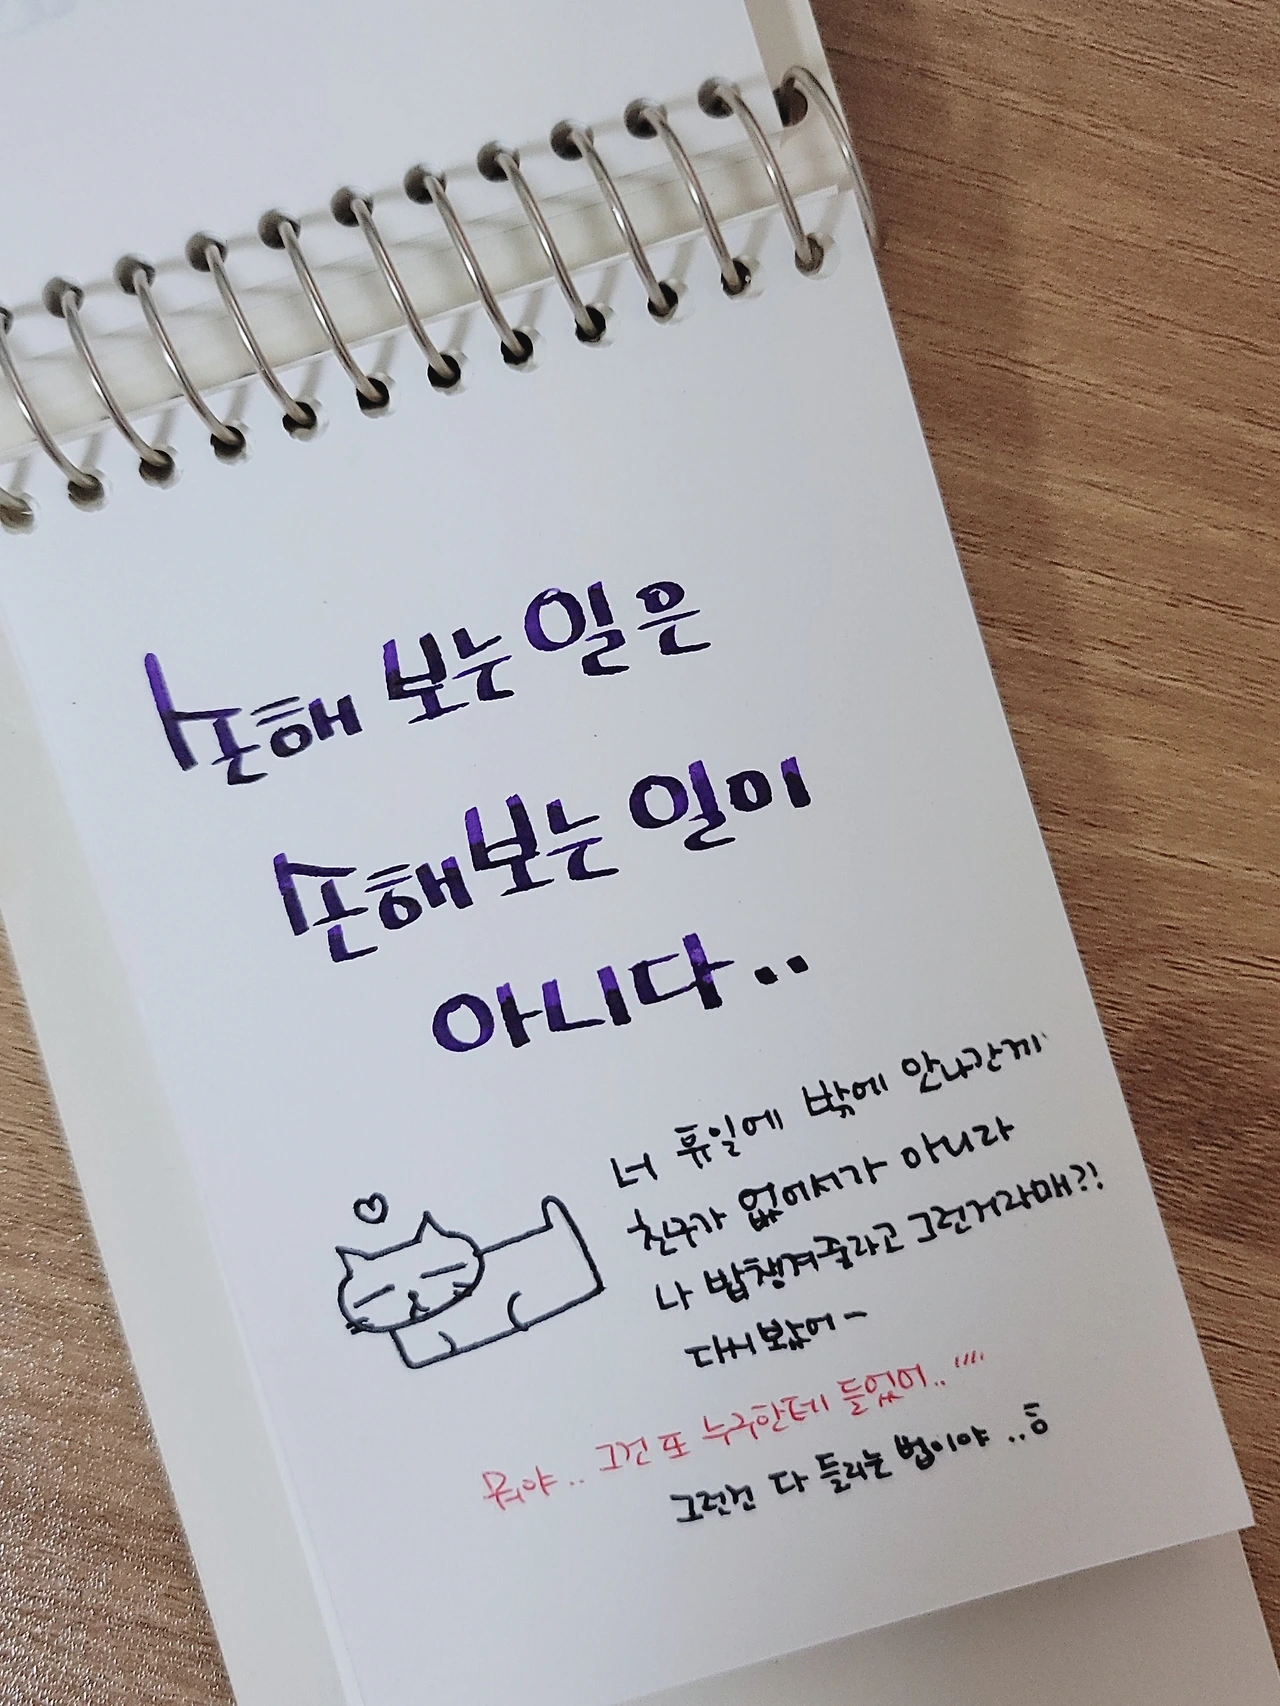 손해 보는 일은
손해보는 일이
아니다..
너 휴일에 밖에 안나간게
친구가 없어서가 아니라
나 밥챙겨줄라고 그런거라매?!
다시봤어~
뭐야.. 그건 또 누구한테 들었어..''''
그런건 다 들리는 법이야 ..ㅎ